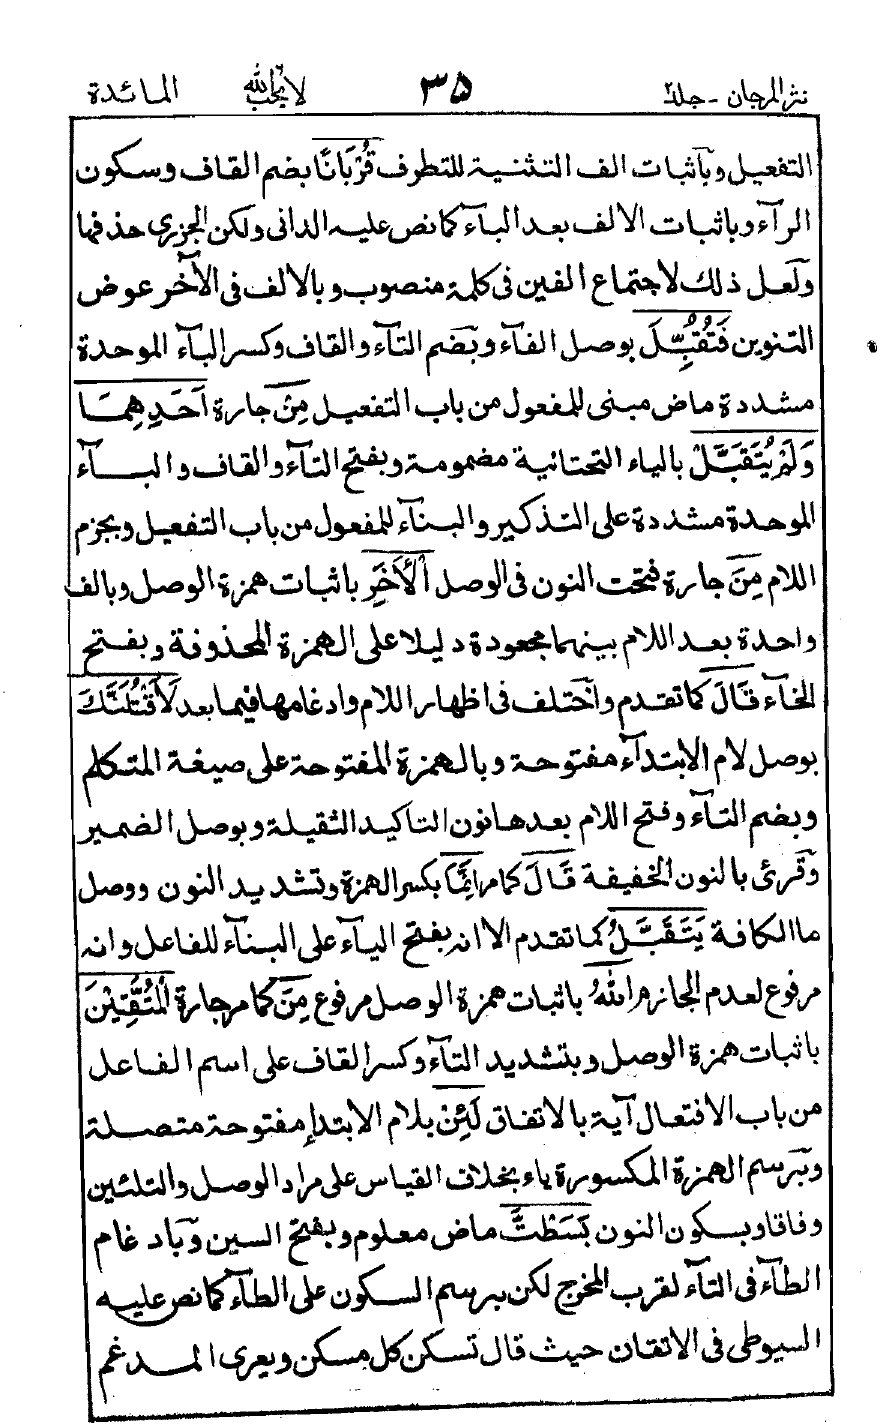 نثر المرجان - جلد۲ ۳۵ لا يحب الله المائدة
التفعيل وباثبات الف التثنية للتطرف قُرْبَانًا بضم القاف وسكون
الرآء وباثبات الالف بعد البآء كما نص عليه الدانى ولكن الجزرى حذفها
ولعل ذلك لاجتماع الفين فى كلمة منصوب وبالالف فى الآخر عوض
التنوين فَتُقُبِّلَ بوصل الفآء وبضم التآء والقاف وكسر البآء الموحدة
مشددة ماض مبنى للمفعول من باب التفعيل مِنْ جارة اَحَدِهِمَا
وَلَمْ يُتَقَبَّلْ بالياء التحتانية مضمومة وبفتح التآء والقاف والبآء
الموحدة مشددة على التذكير والبنآء للمفعول من باب التفعيل وبجزم
اللام مِنَ جارة فتحت النون فى الوصل الْاٰخَرِ باثبات همزة الوصل وبالف
واحدة بعد اللام بينهما مجعودة دليلا على الهمزة المحذوفة وبفتح
الخآء قَالَ كما تقدم واختلف فى اظهار اللام وادغامها فيما بعد لَاَقْتُلَنَّكَ
بوصل لام الابتدآء مفتوحة وبالهمزة المفتوحة على صيغة المتكلم
وبضم التآء وفتح اللام بعدها نون التاكيد الثقيلة وبوصل الضمير
وقرئ بالنون الخفيفة قَالَ كما مر اِنَّمَا بكسر الهمزة وتشديد النون ووصل
ما الكافة يَتَقَبَّلُ كما تقدم الا انه بفتح اليآء على البنآء للفاعل وانه
مرفوع لعدم الجازم اللهُ باثبات همزة الوصل مرفوع مِنَ كما مر جارة الْمُتَّقِيْنَ
باثبات همزة الوصل وبتشديد التآء وكسر القاف على اسم الفاعل
من باب الافتعال آية بالاتفاق لَئِنْ بلام الابتداء مفتوحة متصلة
وبرسم الهمزة المكسورة ياء بخلاف القياس على مراد الوصل والتلئين
وفاقا وبسكون النون بَسَطْتَّ ماض معلوم وبفتح السين وبادغام
الطآء فى التآء لقرب المخرج لكن برسم السكون على الطآء كما نص عليه
السيوطى فى الاتقان حيث قال تسكن كل مسكن ويعرى المدغم